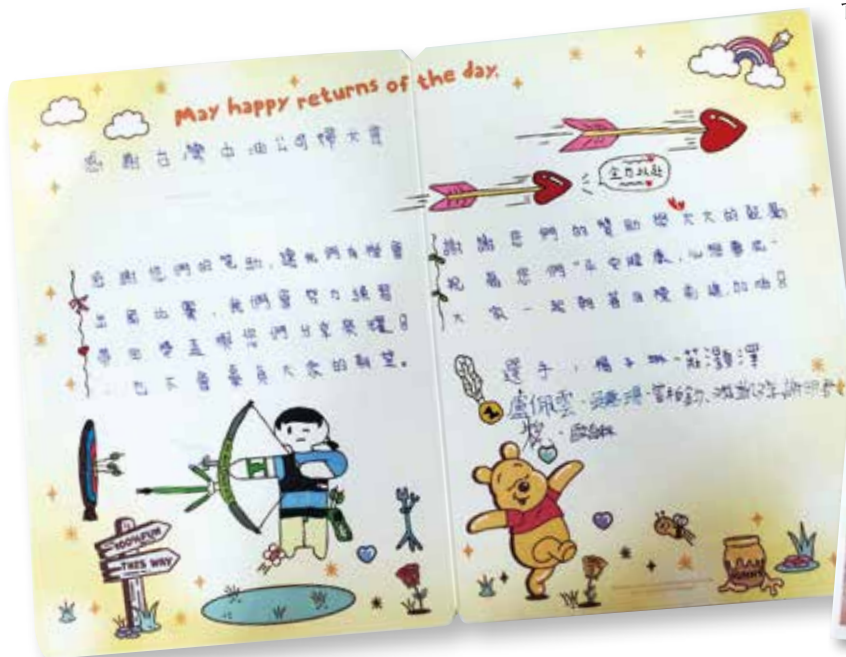 May happy returns of the day.
感謝台灣中油公司
感謝您們的贊助,讓我們有機會
出國比賽,我們會努力練習
帶回獎盃與您們分享榮耀!
也不會辜負大家的期望。
100%FUN
THIS WAY
全力以赴
謝謝您們的贊助與大大的鼓勵
祝福您們"平安健康,心想事成"
大家一起朝著目標前進,加油!
選手:楊子
盧佩雲
1
HUNNY